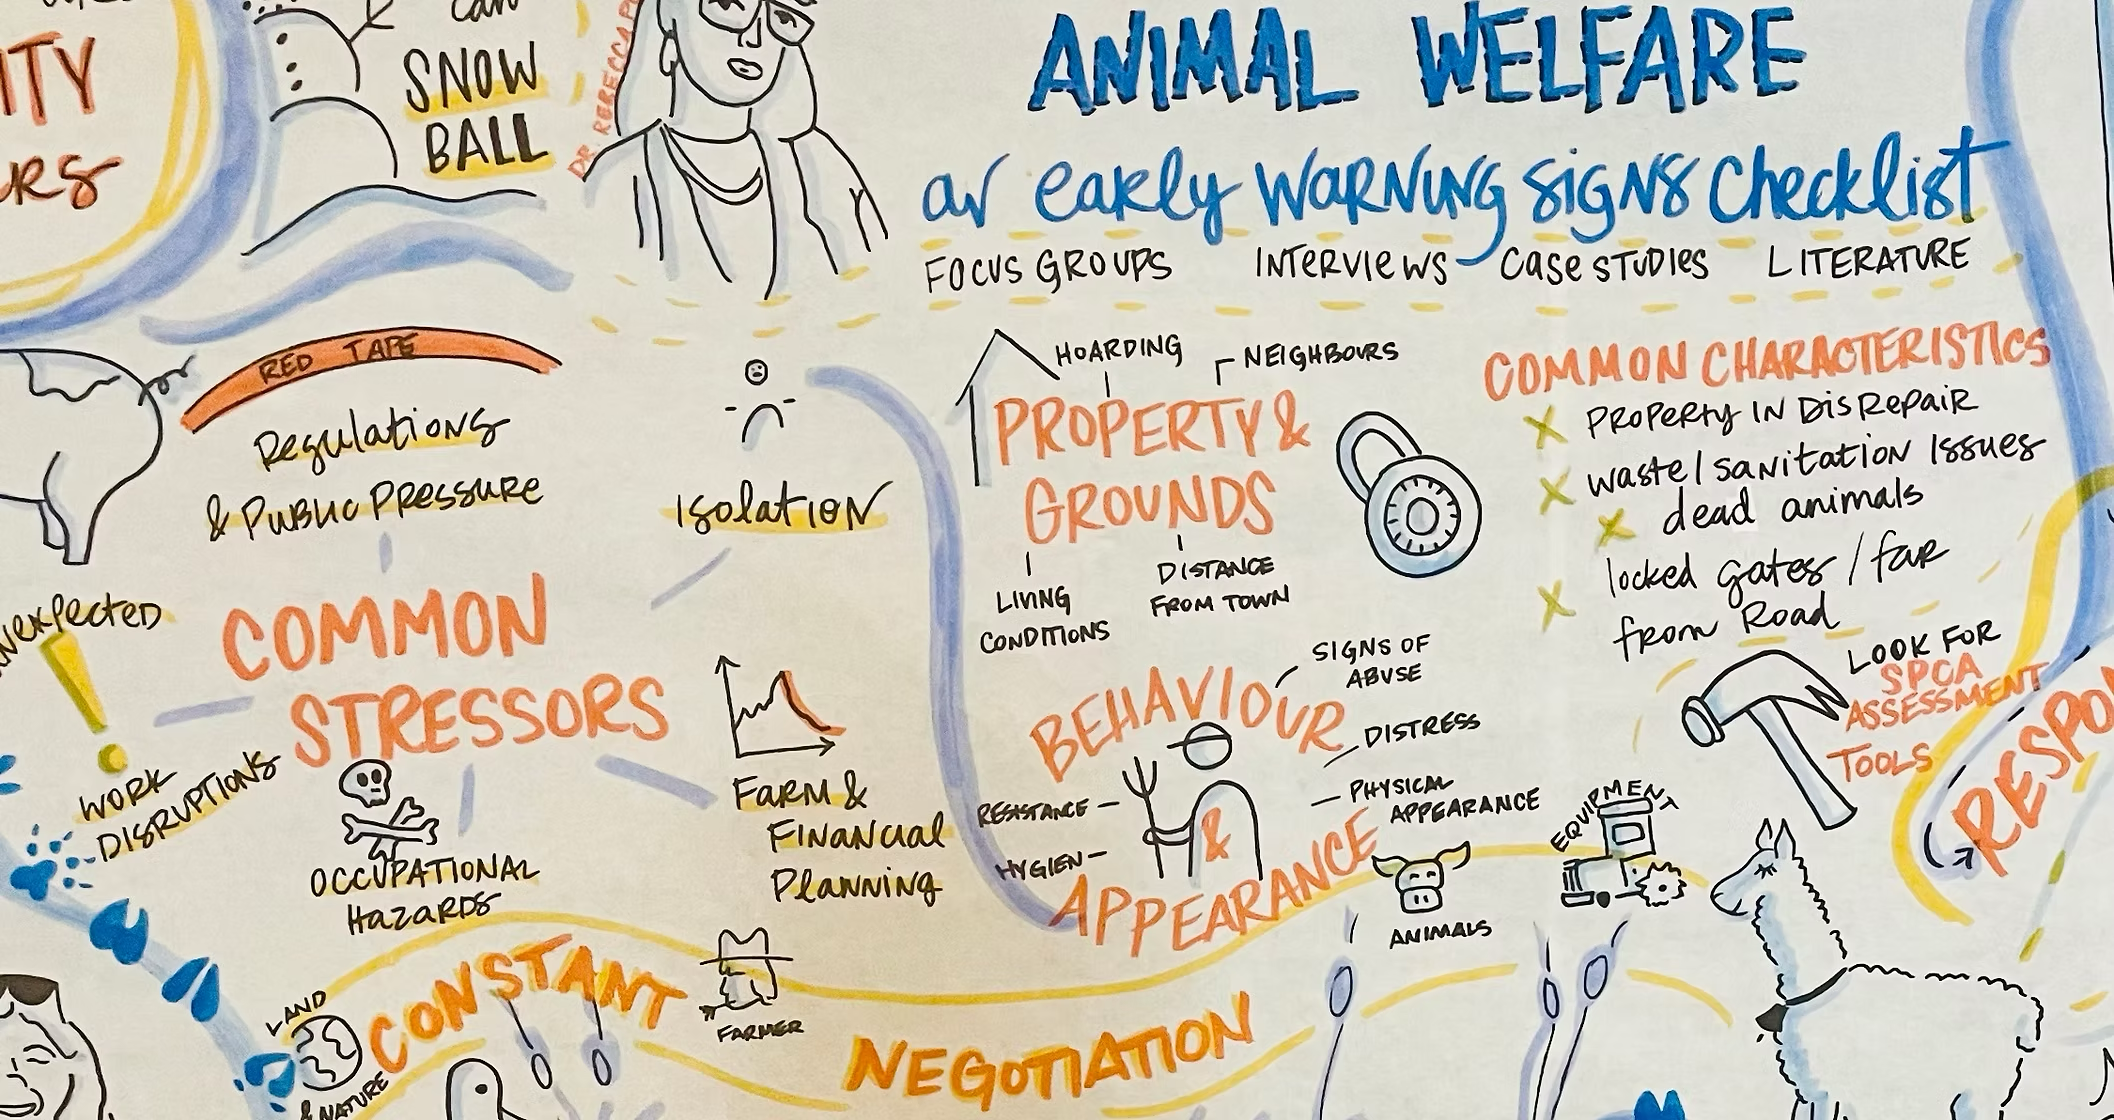 ITY
can
SNOW
BALL
DR. REBECCA
ANIMAL WELFARE
an early warning signs checklist
FOCUS GROUPS INTERVIEWS CASE STUDIES LITERATURE
RED TAPE
Regulations
& Public Pressure
Isolation
unexpected
WORK
DISRUPTIONS
COMMON
STRESSORS
OCCUPATIONAL
HAZARDS
FARM &
FINANCIAL
Planning
HOARDING
NEIGHBOURS
PROPERTY &
GROUNDS
LIVING
CONDITIONS
DISTANCE
FROM TOWN
COMMON CHARACTERISTICS
x PROPERTY IN DISREPAIR
x waste/sanitation issues
x dead animals
x locked gates/far
from Road
LOOK FOR
SPCA
ASSESSMENT
TOOLS
SIGNS OF
ABUSE
BEHAVIOUR
DISTRESS
PHYSICAL
APPEARANCE
RESISTANCE
HYGIEN
&
APPEARANCE
ANIMALS
EQUIPMENT
LAND
& NATURE
CONSTANT
FARMER
NEGOTIATION